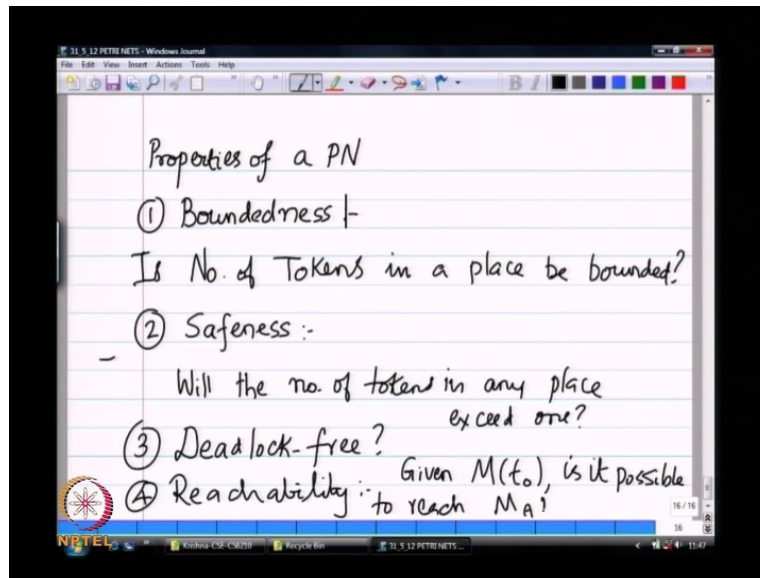 31_5_12 PETRI NETS - Windows Journal
File Edit View Insert Actions Tools Help
Properties of a PN
① Boundedness :-
Is No. of Tokens in a place be bounded?
② Safeness :-
Will the no. of tokens in any place
exceed one?
③ Deadlock-free?
④ Reachability :- Given M(t₀), is it possible
to reach M_A?
16 / 16
16
NPTEL
Krishna-CSE-CS6210 Recycle Bin 31_5_12 PETRI NETS ... 11:47